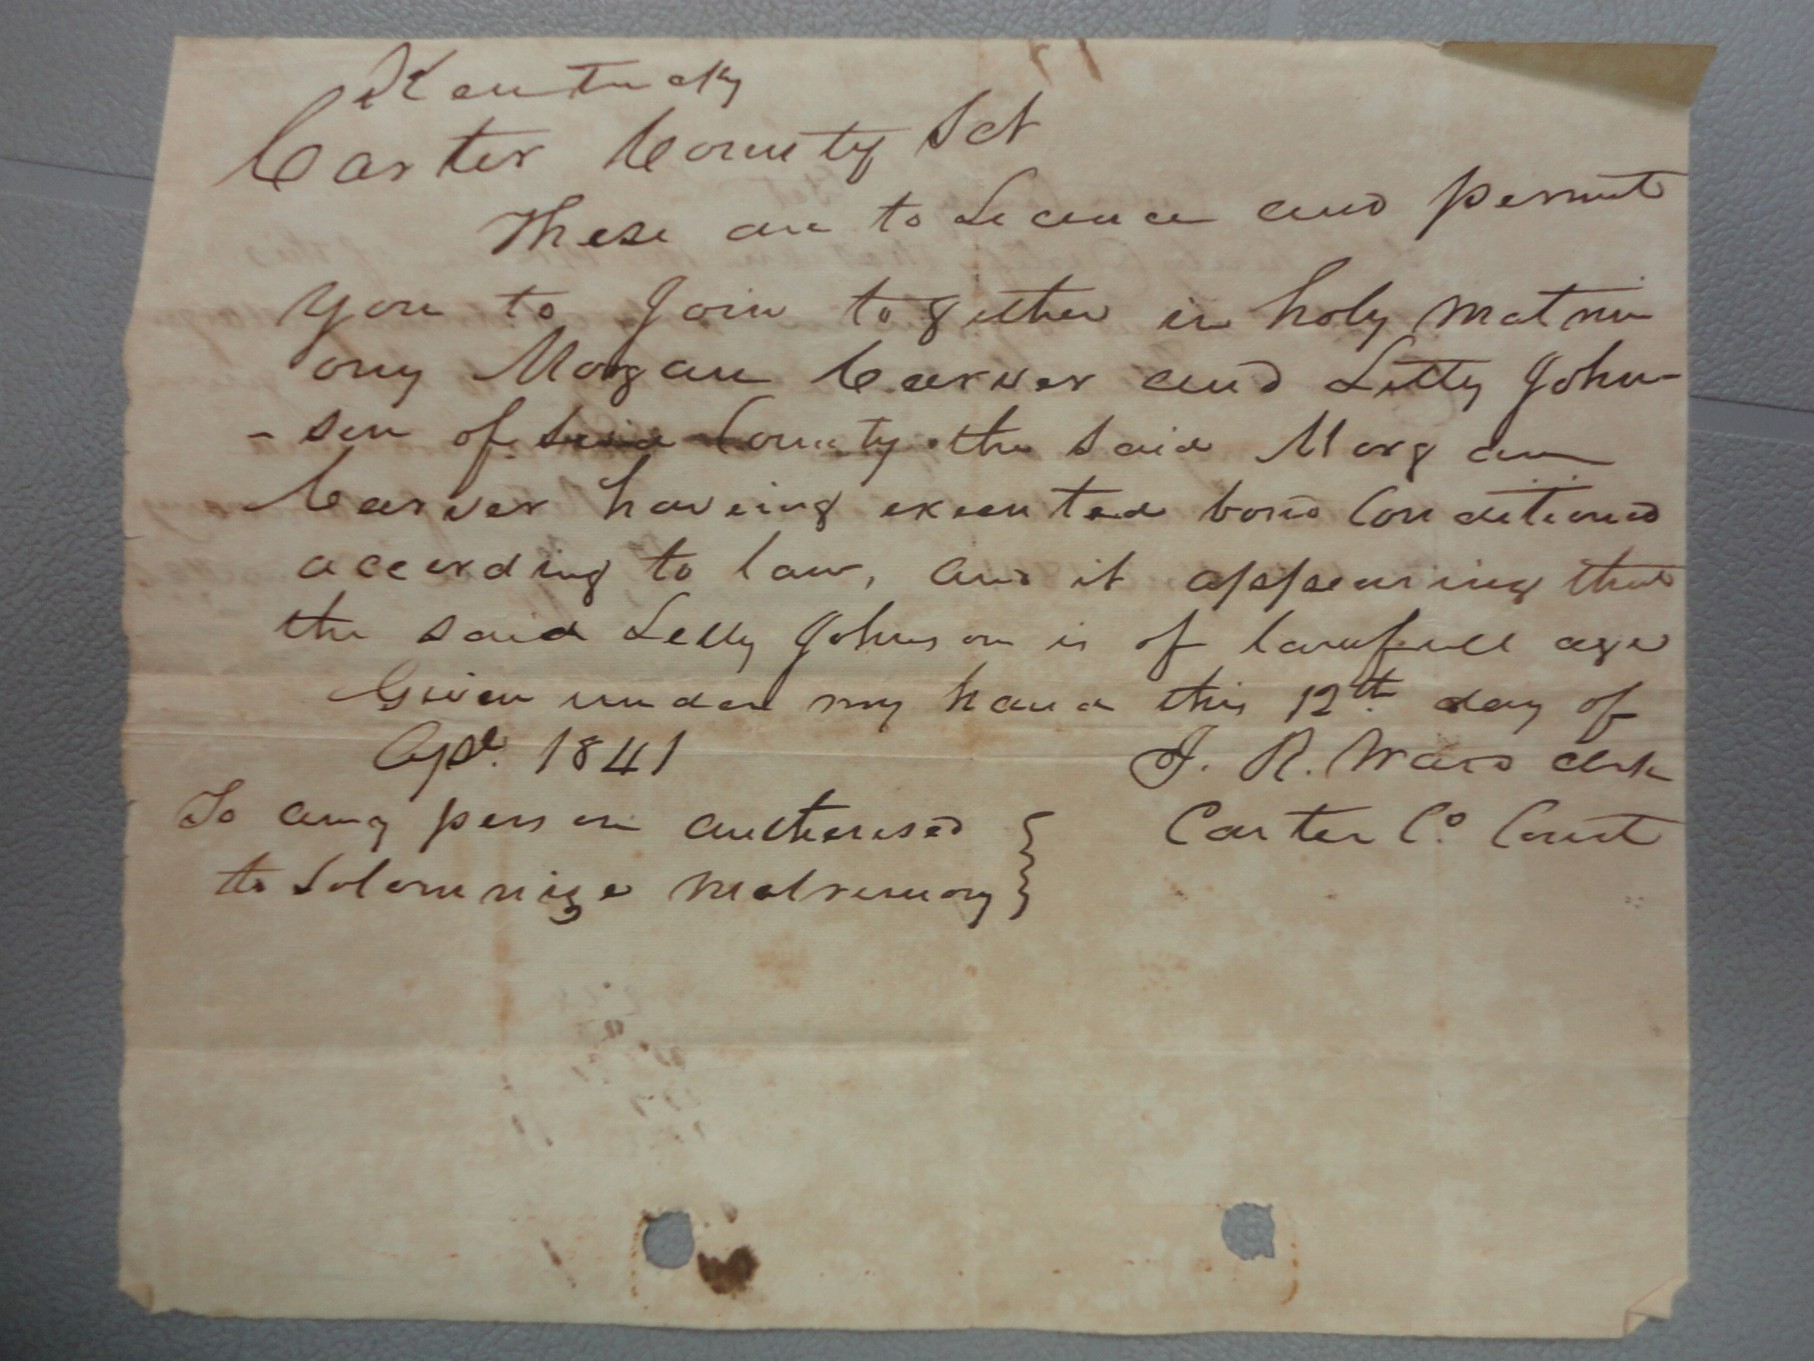 Kentucky
Carter County Sct
These are to Licence and permit
you to Join together in holy matrim
ony Morgan Carver and Letty John-
- son of Said County the Said Morgan
Carver having executed bond Conditioned
according to law, and it appearing that
the said Letty Johnson is of lawfull age
Given under my hand this 12th day of
Apl. 1841 J. R. Ward clerk
To any person autherised Carter Co. Court
to Solomnize Matrimony